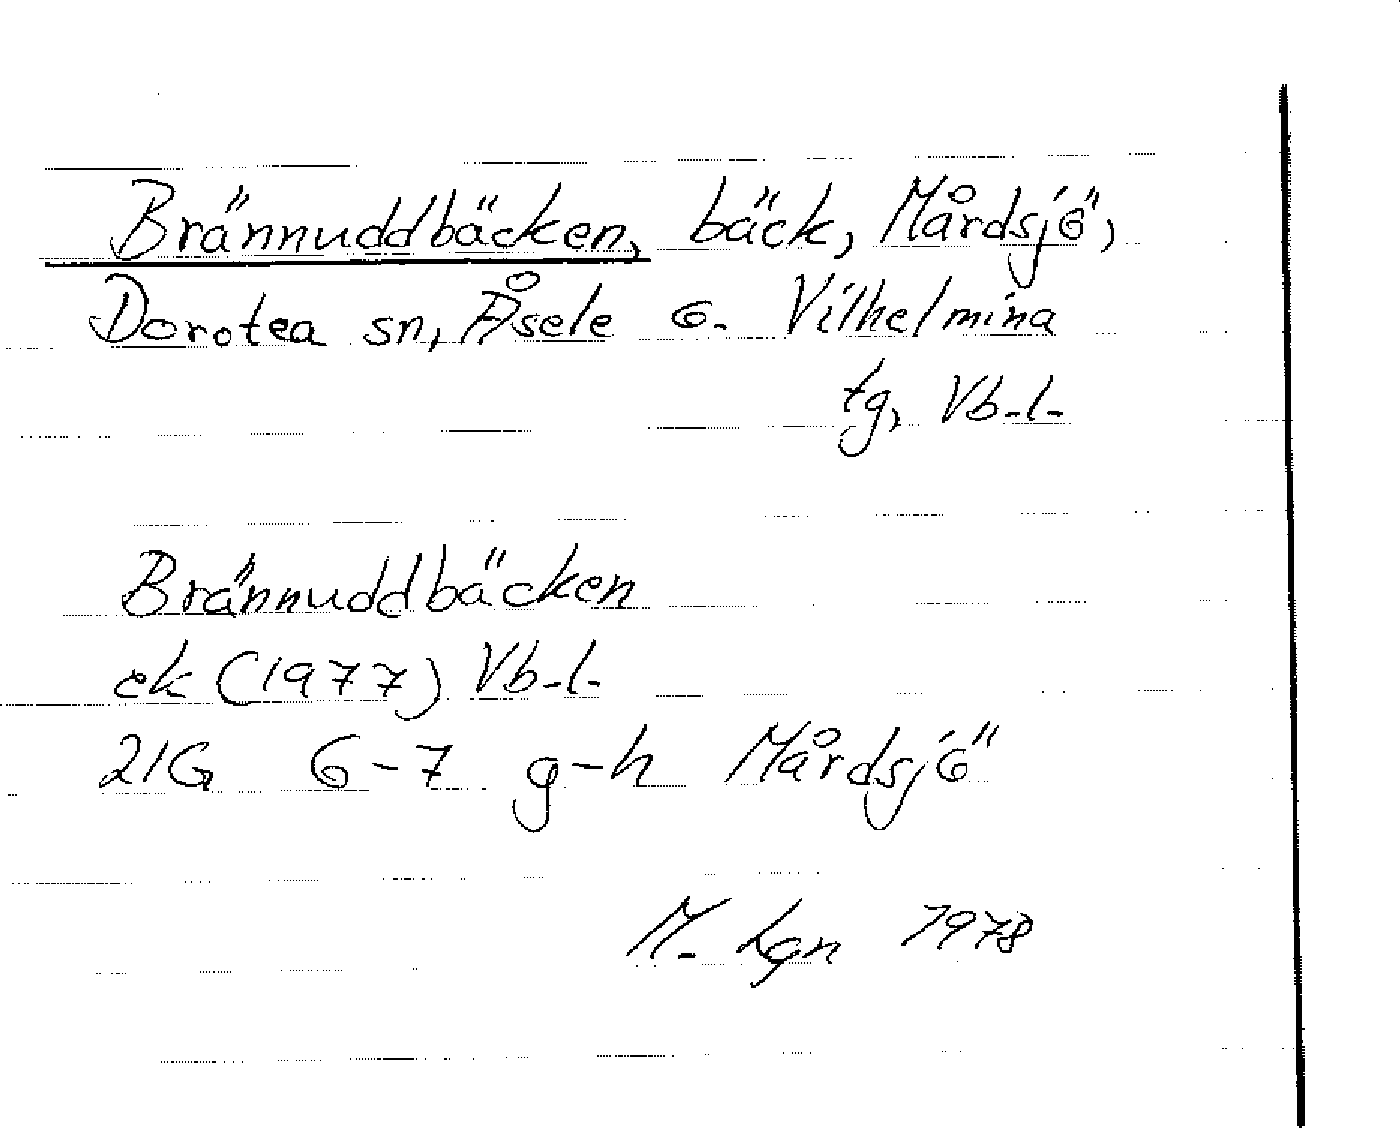 Brännuddbäcken, bäck, Mårdsjö,
Dorotea sn, Åsele o. Vilhelmina
tg, Vb.l.
Brännuddbäcken
ek (1977) Vb.l.
21G 6-7 g-h Mårdsjö
M. Lgn 1978